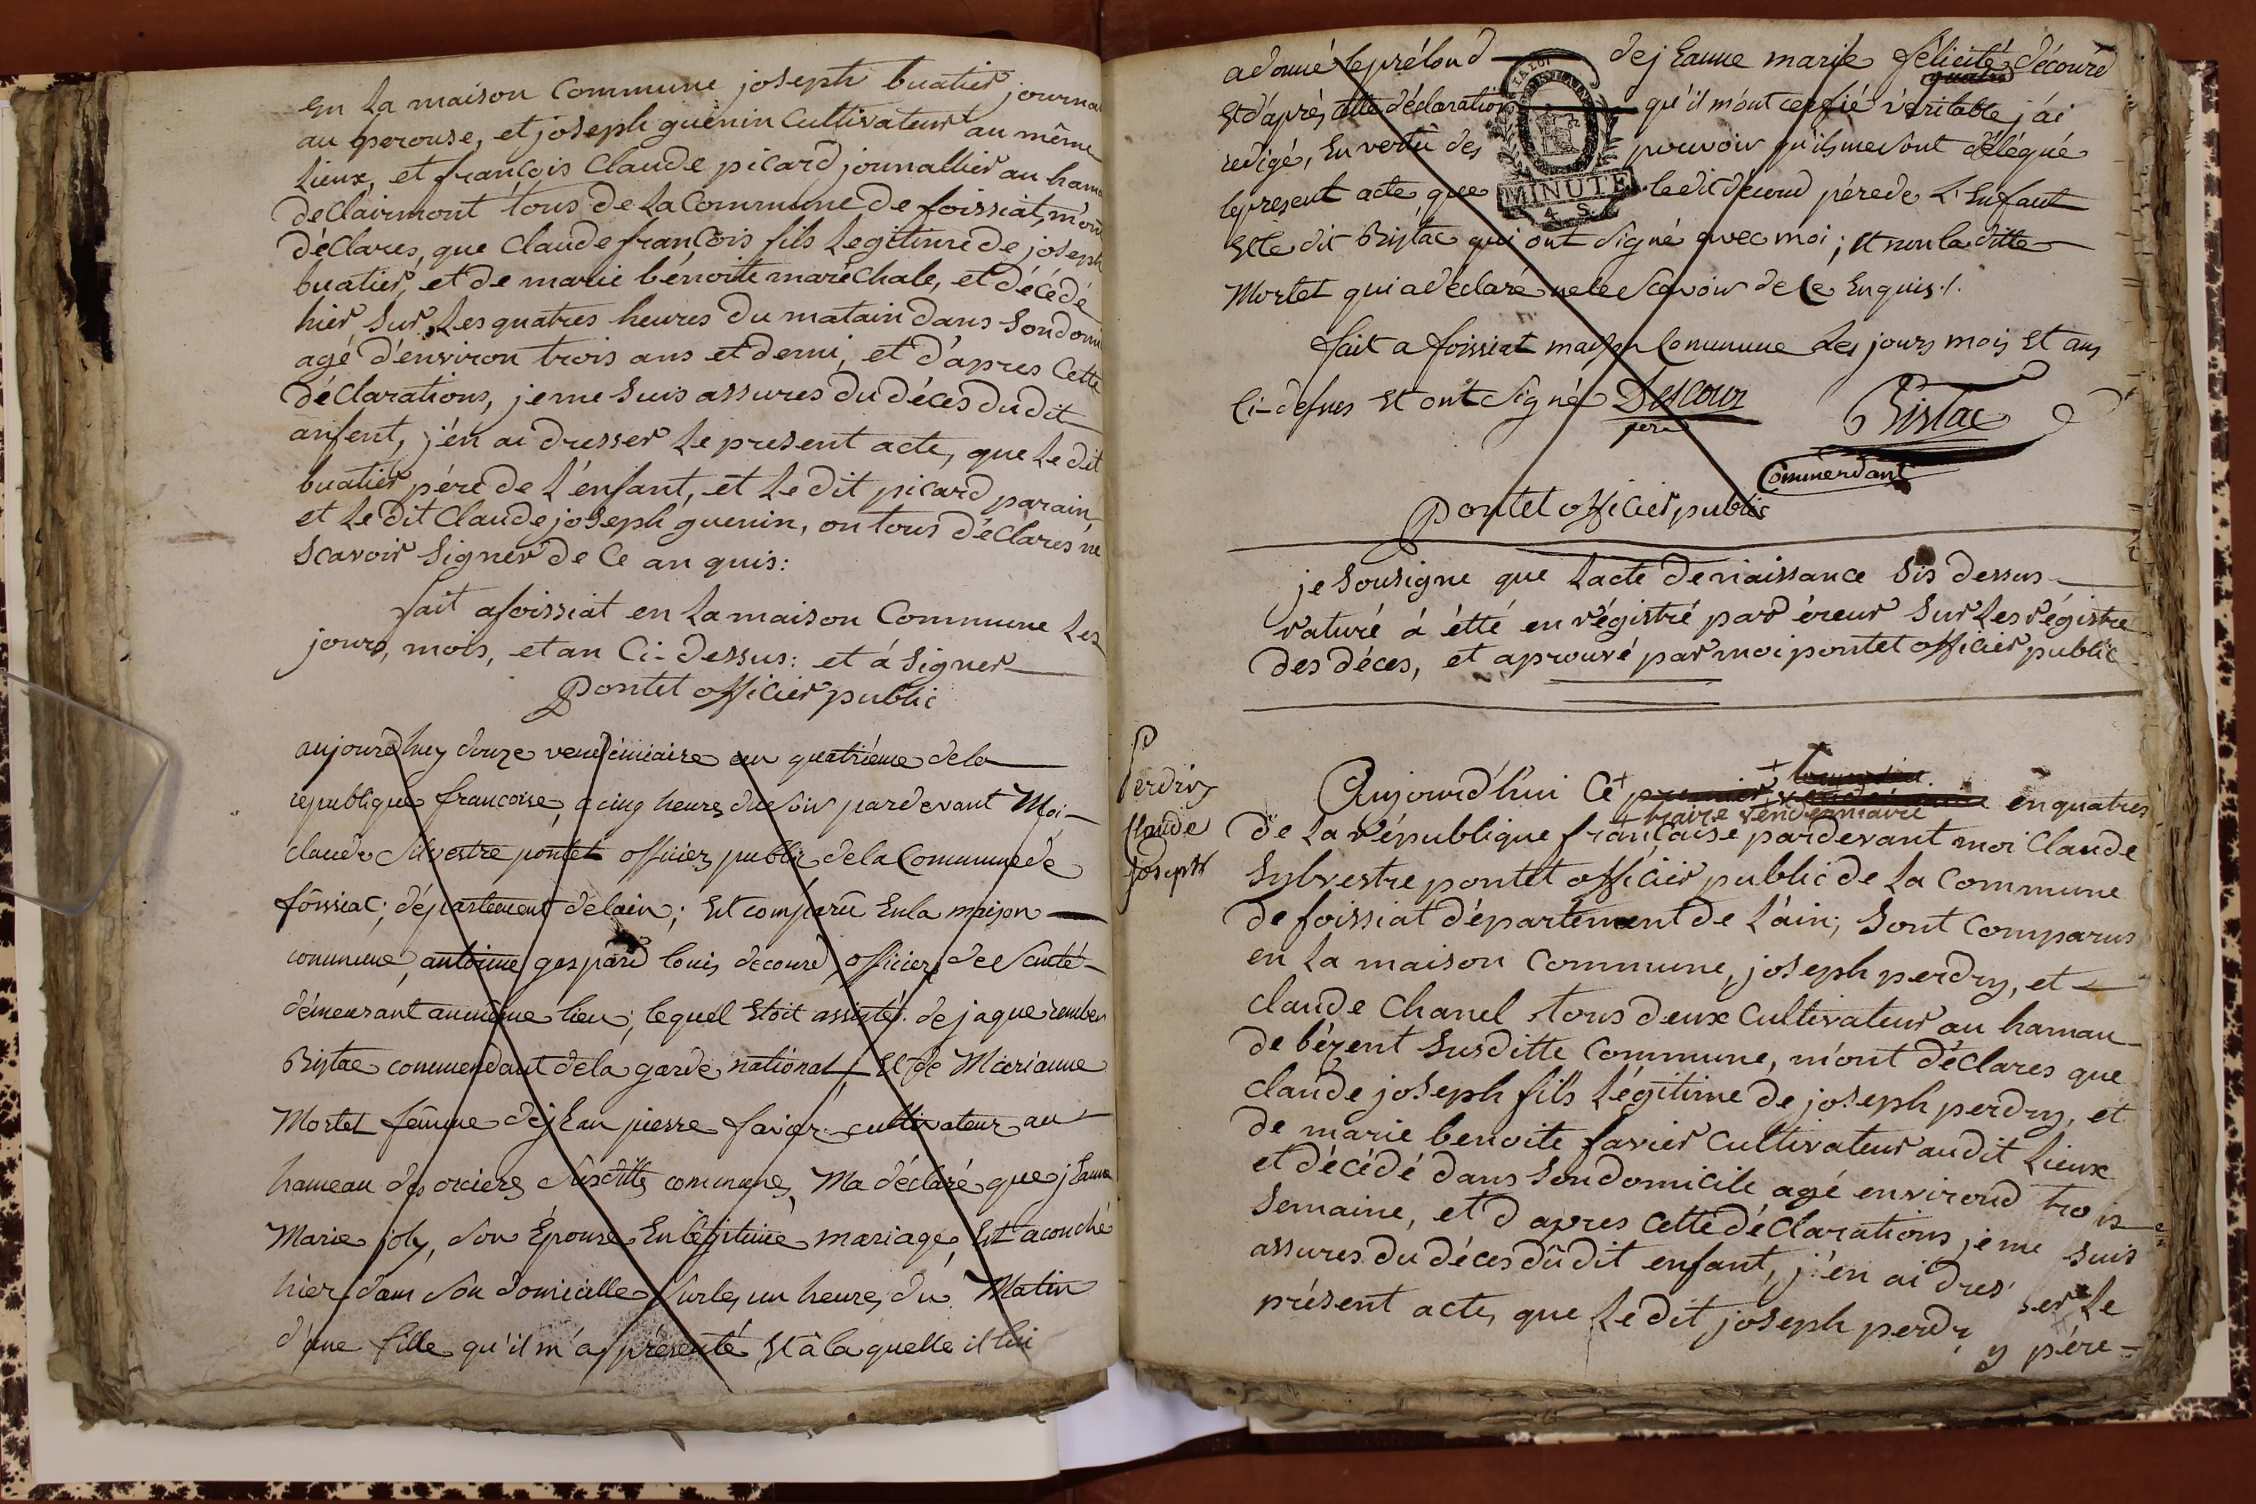 En La maison Commune joseph buatier journa
au perouse, et joseph guenin Cultivateur au même
Lieux, et françois Claude picard journallier au hama
de Clairmont tous de La Commune de foissiat, m'ont
déclares, que Claude françois fils Legitime de joseph
buatier, et de marie bénoite maréchale, et décédé
hier sur Les quatres heures du matain dans son domi
agé d'environ trois ans et demi, et d'apres Cette
déclarations, je me suis assures du décés du dit
anfent, j'én ai dresser Le present acte, que Le dit
buatier pére de L'énfant, et Le dit picard parain
et Le dit Claude joseph guenin, on tous déclarés ne
scavoir signer de Ce an quis:
fait a foissiat en La maison Commune Les
jours, mois, et an Ci-dessus: et á signer
Pontet officier public
aujourdhuy douze vendémiaire an quatriéme de la
republique francoise, a cinq heures du soir pardevant Moi
claude silvestre pontet officier public de la Commune de
foissiat; département de lain; Est comparu En la maison
commune, antoine gaspard louis decourd officier de santé
démeurant au même lieu; lequel Etoit assisté de jaque
Bistac commendant de la garde national, Et de Marianne
Mortet femme de jEan pierre favier cultivateur au
hameau des orciers susditte commune, Ma déclaré que jEanne
Marie joly, son Epouse En légitime mariage, Est acouché
hier dans son domicille sur les un heures du Matin
d'une fille qu'il m'a présenté, Et à laquelle il lui
a donné le prénom de jEanne marie félicité décourd
Et d'après cette déclaration qu'il m'ont certifié véritable j'ai
redigé, En vertû des pouvoir qu'ils me sont délégué
le present acte que le dit decourd pére de L'Enfant
Et le dit Bistac qui ont signé avec moi; Et non la ditte
Mortet qui a déclaré ne le scavoir de ce Enquis./.
fait a foissiat maison Commune les jours mois Et ans
Ci-desus Et ont signé Descour
pere
Bistac
Commendant
MINUTE
4 S
Pontet officier public
je sousigne que L'acte de naissance sis dessus
raturé á étté enrégistré par éreur sur Les régistre
des déces, et aprouvé par moi pontet officier public
Perdrix
Claude
joseph
Aujourd'hui Ce premier vendémiaire en quatres
maire vendemiaire
de La république française pardevant moi Claude
Sylvestre pontet officier public de La commune
de foissiat département de L'ain; sont comparus
en La maison Commune, joseph perdry, et
claude Chanel tous deux Cultivateur au hamau
de bézent susditte Commune, m'ont déclares que
claude joseph fils Légitime de joseph perdry, et
de marie benoite favier Cultivateur au dit Lieux
et décédé dans son domicile agé environd trois
semaine, et d'apres Cette déclarations je me suis
assures du déces du dit enfant, j'én ai dresser Le
présent acte, que Le dit joseph perdry pére